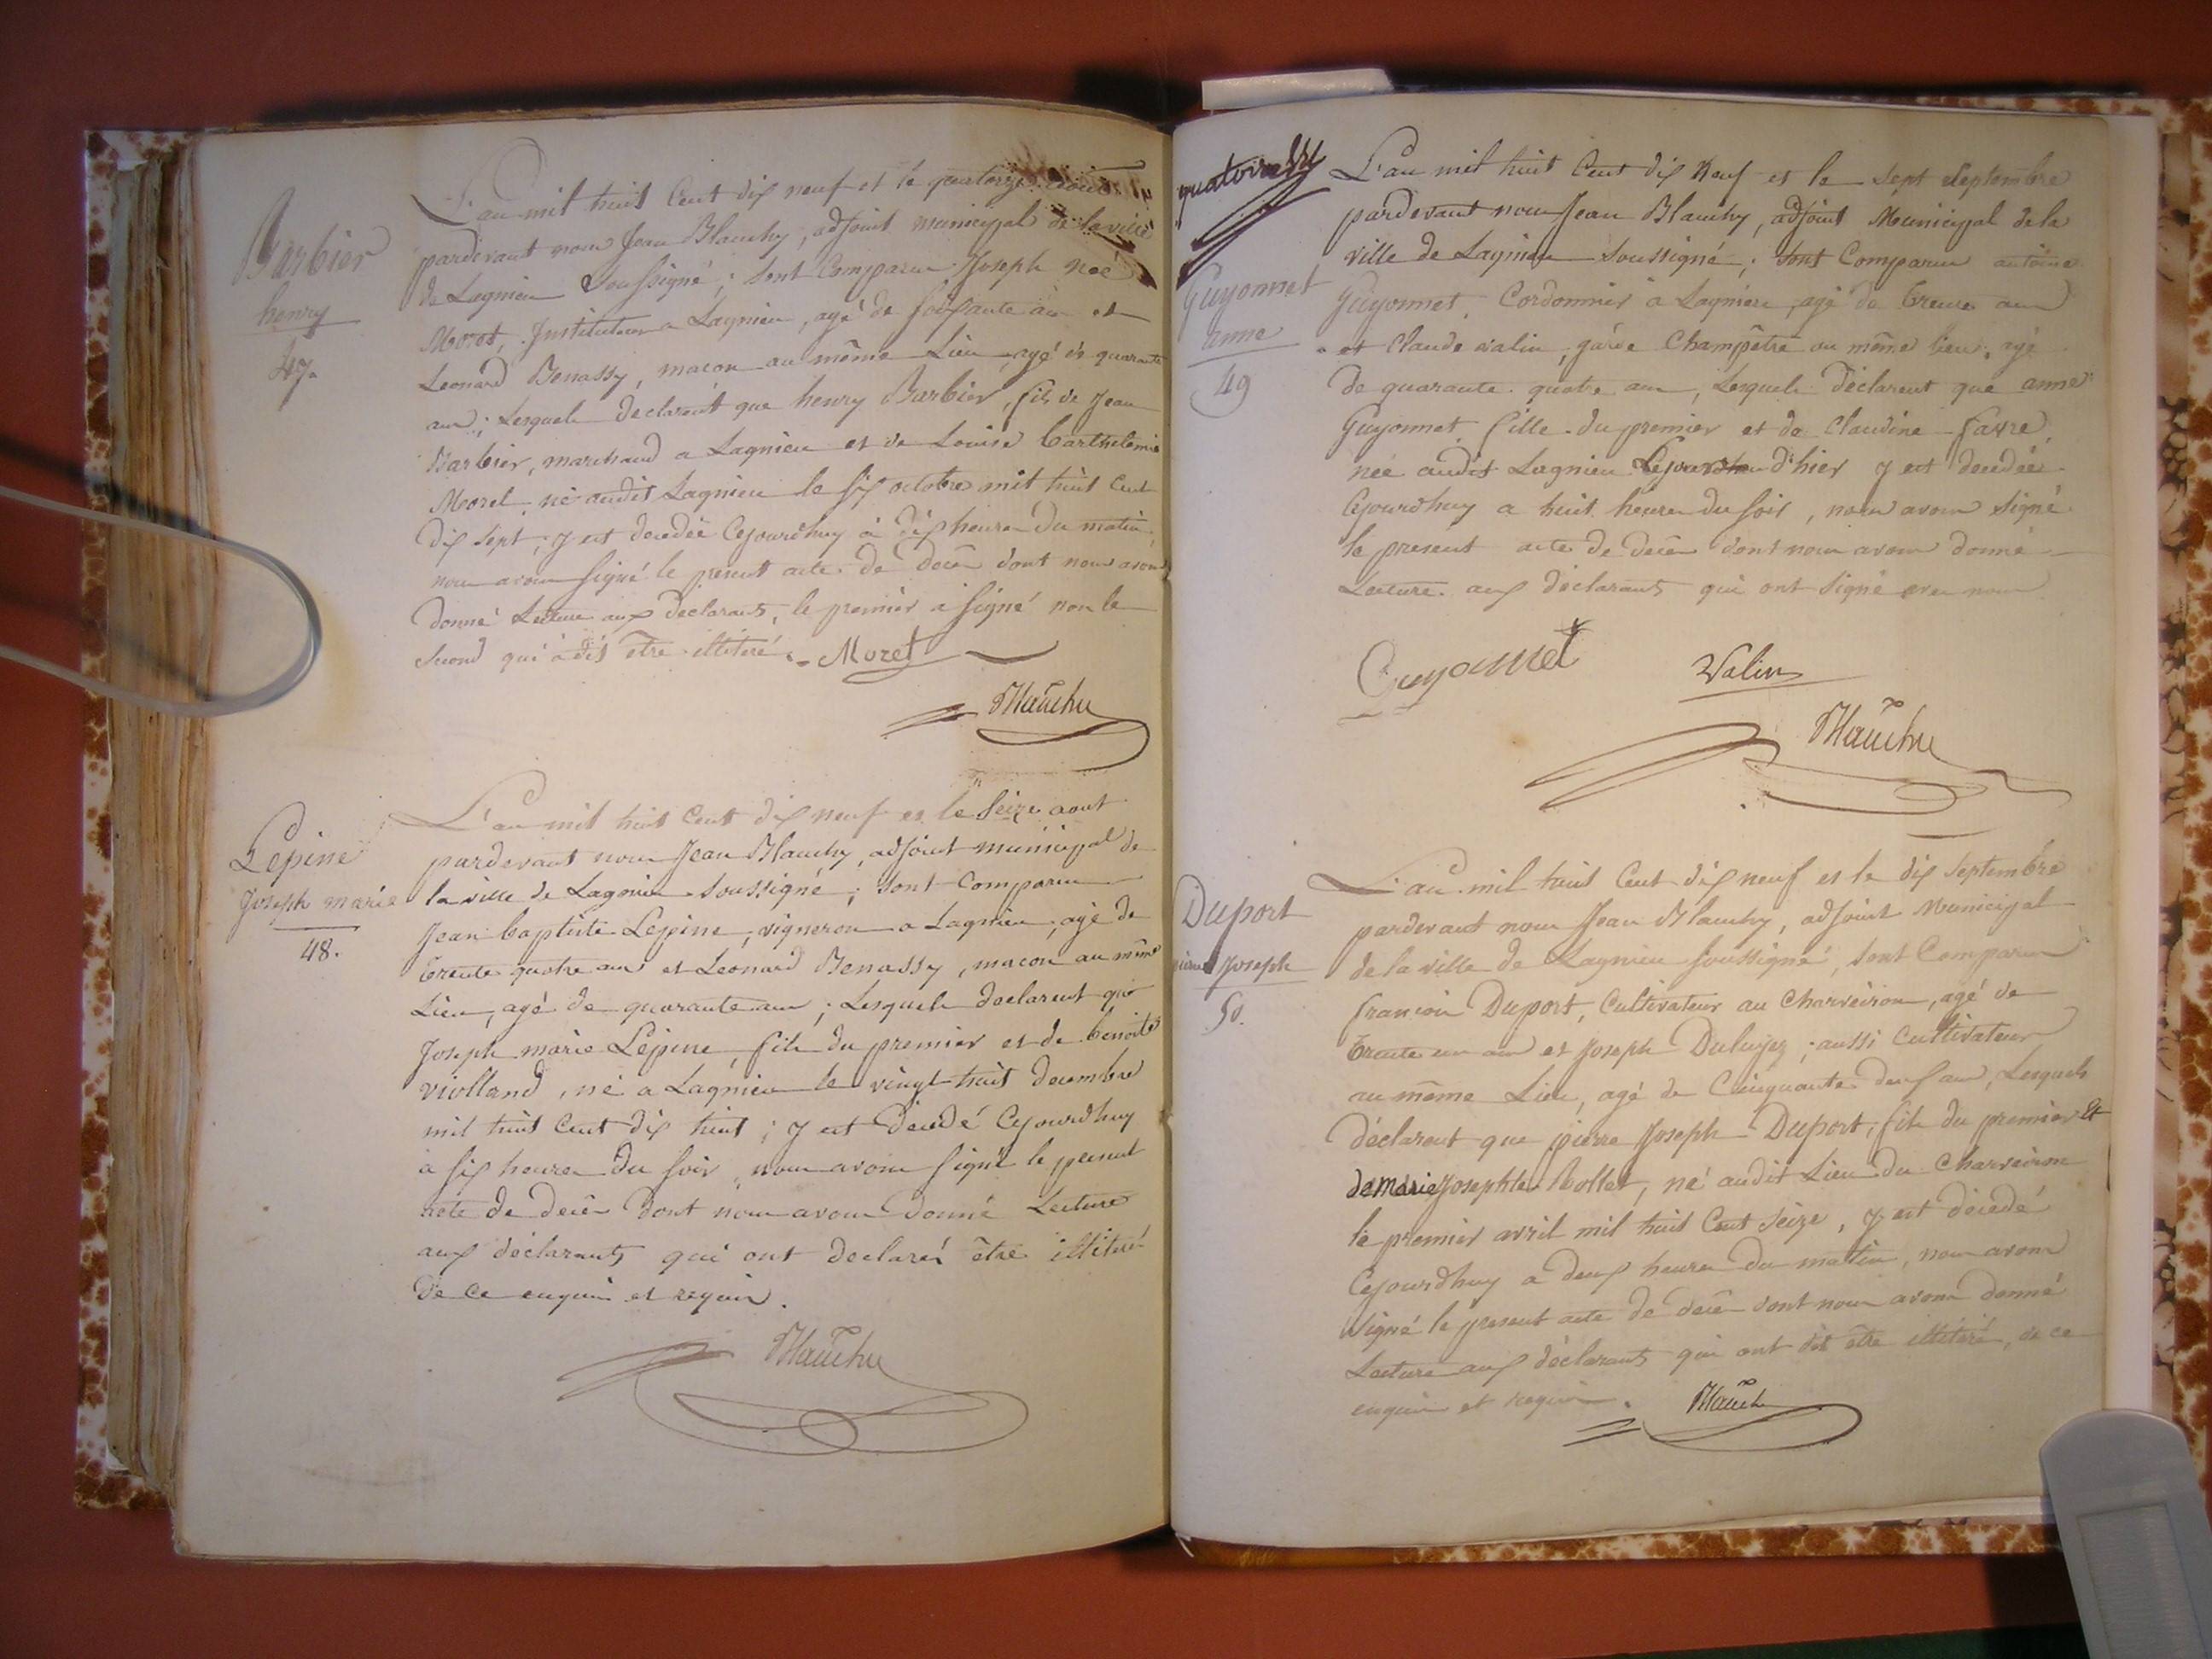 Barbier
henry
47.
L'an mil huit Cent dix neuf et le quatorze aout
pardevant nous Jean Blanchy, adjoint municipal de la ville
de Lagnieu Soussigné; sont Comparus Joseph noé
Moret, Instituteur a Lagnieu, agé de soixante ans et
Leonard Benassy, maçon au même Lieu, agé de quarante
ans; Lesquels declarent que henry Barbier, fils de Jean
Barbier, marchand a Lagnieu et de Louise barthelemie
Morel, né audit Lagnieu le six octobre mil huit Cent
dix sept, y est decedée Cejourdhuy à dix heures du matin,
nous avons signé le present acte de decès dont nous avons
donné Lecture aux declarants, le premier a signé non le
second qui a dit être illitéré. Moret
Blauchy
Lépine
Joseph marie
48.
L'an mil huit Cent dix neuf et le Seize aout
pardevant nous Jean Blanchy, adjoint municipal de
la ville de Lagnieu soussigné; sont Comparus
Jean baptiste Lépine, vigneron a Lagnieu, agé de
trente quatre ans et Leonard Benassy, macon au même
Lieu, agé de quarante ans; Lesquels declarent que
Joseph marie Lépine, fils du premier et de benoite
violland, né a Lagnieu le vingt huit decembre
mil huit Cent dix huit; y est decedé Cejourdhuy
a six heures du soir, nous avons signé le present
acte de decès dont nous avons donné Lecture
aux déclarants qui ont declaré être illitéré
de ce enquis et requis.
Blauchy
quatorze
Guyonnet
anne
49
L'an mil huit Cent dix Neuf et le sept septembre
pardevant nous Jean Blanchy, adjoint Municipal de la
ville de Lagnieu soussigné; sont Comparus antoine
Guyonnet, Cordonnier à Lagnieu, agé de trente ans
et Claude valin, garde Champêtre au même lieu, agé
de quarante quatre ans, Lesquels déclarent que anne
Guyonnet, fille du premier et de Claudine favre,
née audit Lagnieu Lejour d'hier y est decedée
Cejourdhuy a huit heures du soir, nous avons signé
le present acte de decès dont nous avons donné
Lecture aux déclarants qui ont signé avec nous
Guyonnet Valin
Blauchy
Duport
pierre Joseph
50.
L'an mil huit Cent dix neuf et le dix Septembre
pardevant nous Jean Blanchy, adjoint Municipal
de la ville de Lagnieu soussigné, sont Comparus
françois Duport, Cultivateur au Charveiron, agé de
trente un ans et Joseph; aussi Cultivateur
au même Lieu, agé de Cinquante deux ans, Lesquels
déclarent que pierre Joseph Duport, fils du premier et
de marie Josephte Rollet, né audit Lieu du Charveiron
le premier avril mil huit Cent Seize, y est décédé
Cejourdhuy a deux heures du matin, nous avons
signé le present acte de decès dont nous avons donné
Lecture aux déclarants qui ont dit être illitéré, de ce
enquis et requis. Blauchy